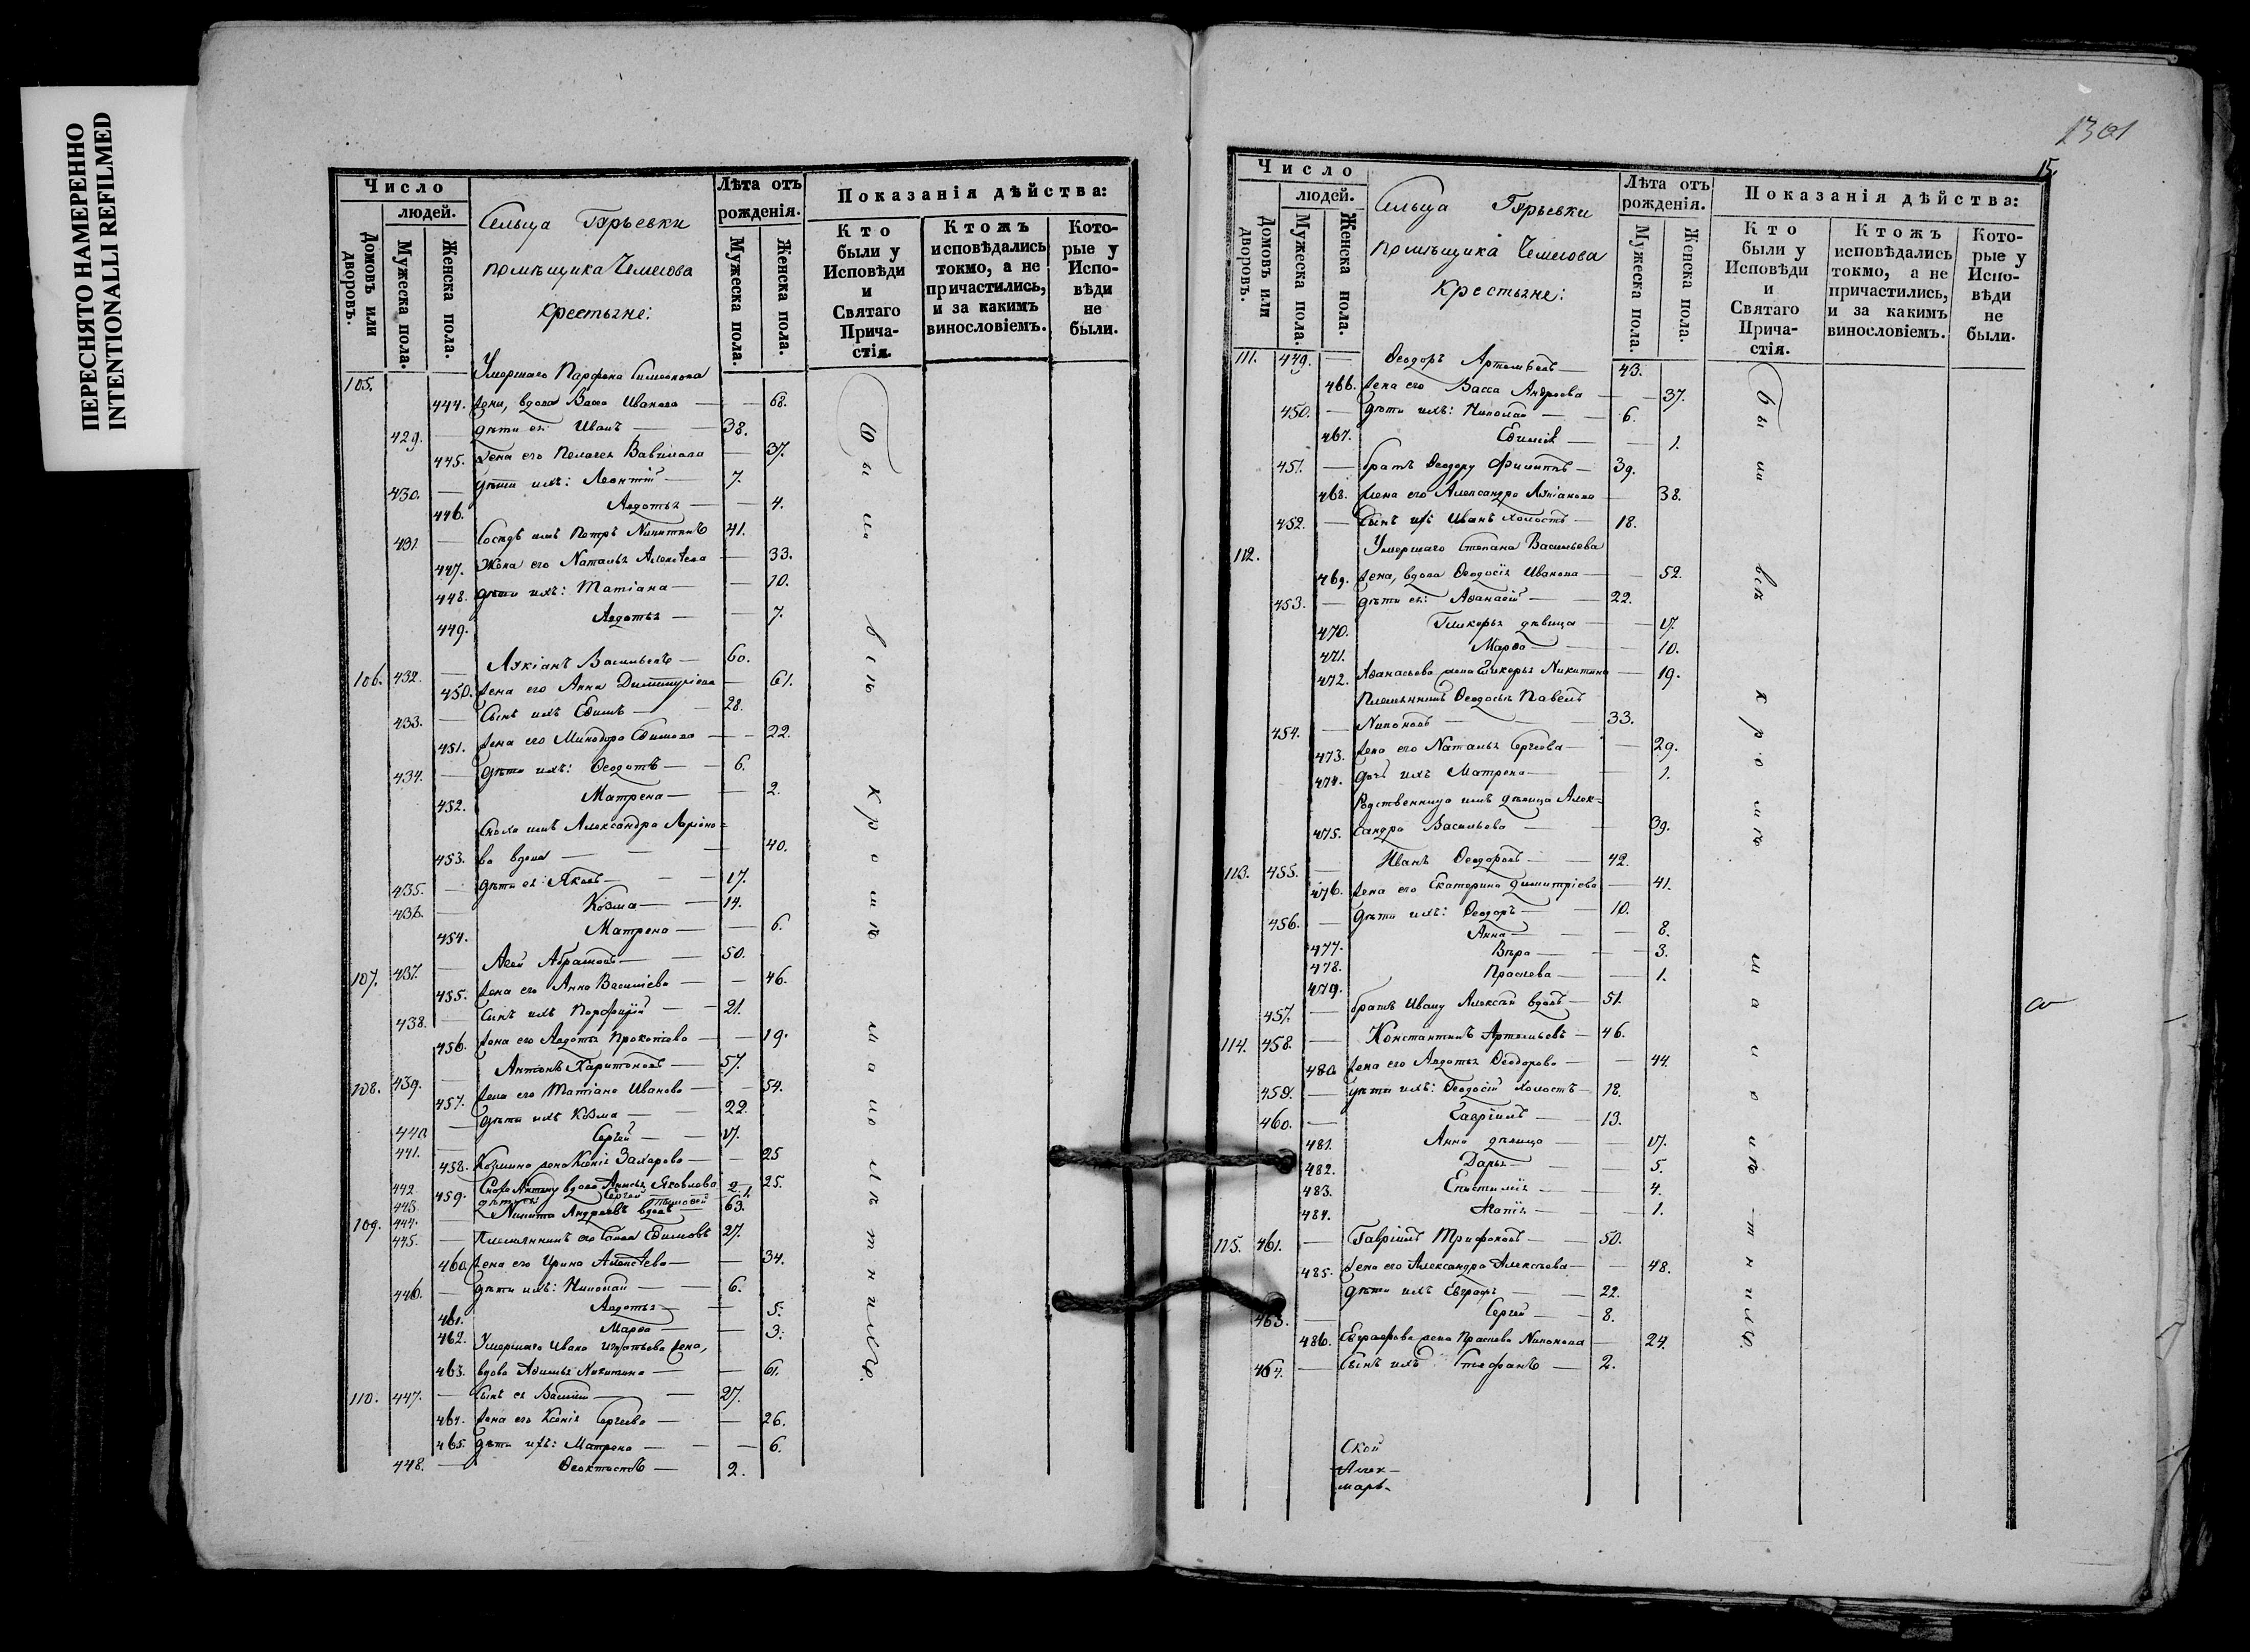 ПЕРЕСНЯТО НАМЕРЕННО
INTENTIONALLI REFILMED
Число
людей.
Домовъ или дворовъ.
Мужеска пола.
Женска пола.
Сельца Гурьевки
помѣщика Чемесова
Крестьяне:
Лѣта отъ рожденія.
Мужеска пола.
Женска пола.
Показанія дѣйства:
Кто были у Исповѣди и Святаго Прича- стія.
Ктожъ исповѣдались токмо, а не причастились, и за какимъ винословіемъ.
Кото- рые у Испо- вѣди не были.
105. Умершаго Парфена Симеонова
444. жена, вдова Васса Иванова 68.
429. дѣти ея: Иванъ 38.
445. Жена его Пелагея Вавилова 37.
430. дѣти ихъ: Леонтій 7.
446. Авдотья 4.
431. Сосѣдъ имъ Петръ Никитинъ 41.
447. Жена его Наталья Алексѣева 33.
448. дѣти ихъ: Татіана 10.
449. Авдотья 7.
106. 432. Лукіанъ Васильевъ 60.
450. жена его Анна Димитріева 61.
433. Сынъ ихъ Ефимъ 28.
451. жена его Минодора Ефимова 22.
434. дѣти ихъ: Ѳеодотъ 6.
452. Матрена 2.
Сноха имъ Александра Ларіоно-
453. ва вдова 40.
435. дѣти ея: Яковъ 17.
436. Козма 14.
454. Матрена 6.
107. 437. Абрамовъ 50.
455. жена его Анна Васильева 46.
438. Сынъ ихъ Порфирій 21.
456. жена его Авдотья Прокопіева 19.
108. 439. Антонъ Харитоновъ 57.
457. жена его Татіана Иванова 54.
440. дѣти ихъ Козма 22.
441. Сергей 17.
458. Козмина жена Ксенія Захарова 25
442. 459. Сноха Антону вдова Анисья Яковлева 25.
443. дѣти ея Сергей 2. 1.
109. 444. Никита Андреевъ вдовъ 63.
445. Племянникъ его Савва Ефимовъ 27.
460. жена его Ирина Алексѣева 34.
446. дѣти ихъ: Николай 6.
461. Авдотья 5.
462. Марфа 3.
Умершаго Ивана Игнатьева жена,
463. вдова Акилина Никитина 61.
110. 447. Сынъ ея Василій 27.
464. жена его Ксенія Сергеева 26.
465. дѣти ихъ: Матрена 6.
448. Ѳеоктистъ 2.
Были всѣ кромѣ малолѣтнихъ.
1301
15.
Число
людей.
Домовъ или дворовъ.
Мужеска пола.
Женска пола.
Сельца Гурьевки
помѣщика Чемесова
Крестьяне:
Лѣта отъ рожденія.
Мужеска пола.
Женска пола.
Показанія дѣйства:
Кто были у Исповѣди и Святаго Прича- стія.
Ктожъ исповѣдались токмо, а не причастились, и за какимъ винословіемъ.
Кото- рые у Испо- вѣди не были.
111. 449. Ѳеодоръ Артемьевъ 43.
466. жена его Васса Андреева 37.
450. дѣти ихъ: Николай 6.
467. 1.
451. братъ Ѳеодору Филиппъ 39.
468. жена его Александра Лукіанова 38.
452. Сынъ ихъ Иванъ холостъ 18.
112. Умершаго Степана Васильева
469. жена, вдова Ѳеодосія Иванова 52.
453. дѣти ея: Аѳанасій 22.
470. Гликерья дѣвица 17.
471. Марфа 10.
472. Аѳанасьева жена Гликерья Никитина 19.
Племянникъ Ѳеодосьи Павелъ
454. Никоновъ 33.
473. жена его Наталья Сергеева 29.
474. дочь ихъ Матрена 1.
Родственница имъ дѣвица Алек-
475. сандра Васильева 39.
113. 455. Иванъ Ѳеодоровъ 42.
476. жена его Екатерина Димитріева 41.
456. дѣти ихъ: Ѳеодоръ 10.
477. Анна 8.
478. Вѣра 3.
479. Прасковья 1.
457. братъ Ивану Алексѣй вдовъ 51.
114. 458. Константинъ Артемьевъ 46.
480. жена его Авдотья Ѳеодорова 44.
459. дѣти ихъ: Ѳеодосій холостъ 18.
460. Гавріилъ 13.
481. Анна дѣвица 17.
482. Дарья 5.
483. Епистимія 4.
484. Агапія 1.
115. 461. Гавріилъ Трифоновъ 50.
485. жена его Александра Алексѣева 48.
дѣти ихъ Евграфъ 22.
463. Сергей 8.
486. Евграфова жена Прасковья Никонова 24.
464. Сынъ ихъ Стефанъ 2.
Были всѣ кромѣ малолѣтнихъ.
Ской
Алек-
марь-